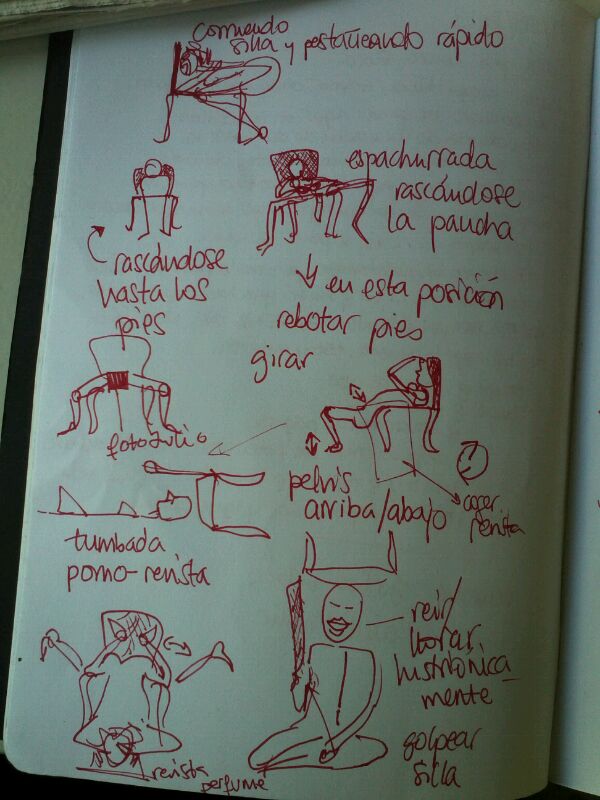 comiendo
silla y pestañeando rápido
espachurrada
rascándose
la pancha
rascándose
hasta los
pies
en esta posición
rebotar pies
girar
foto Julio
pelvis
arriba/abajo
coger
revista
tumbada
porno-revista
reir/
llorar
histriónica-
mente
golpear
silla
revista
perfume